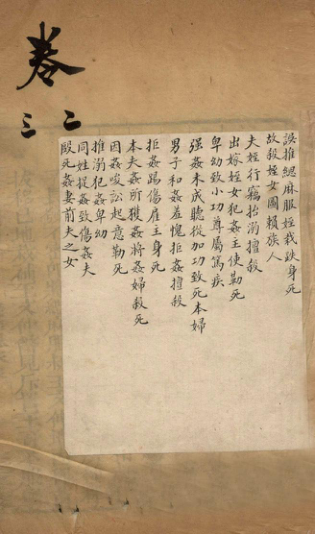 卷
二
三
誤推緦麻服姪栽跌身死
故殺姪女圖賴族人
夫姪行竊抬溺擅殺
出嫁姪女犯姦主使勒死
卑幼致小功尊屬篤疾
强姦未成聽從加功致死本婦
男子和姦羞愧拒姦擅殺
拒姦踢傷雇主身死
本夫姦所獲姦將姦婦殺死
因姦唆訟起意勒死
推溺犯姦卑幼
同姓捉姦致傷姦夫
毆死姦妻前夫之女